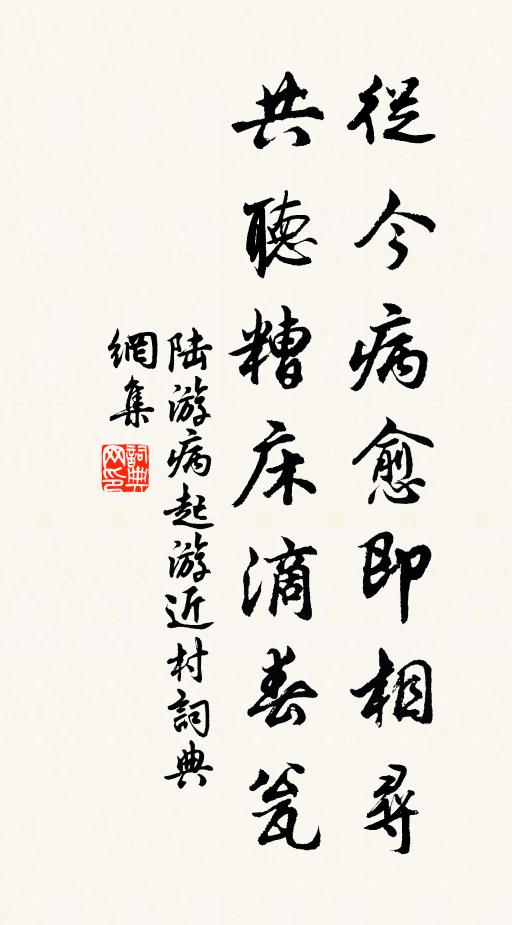 從今病愈即相尋
共聽糟床滴春瓮
陆游病起游近村詞典
網集
詞典
网印